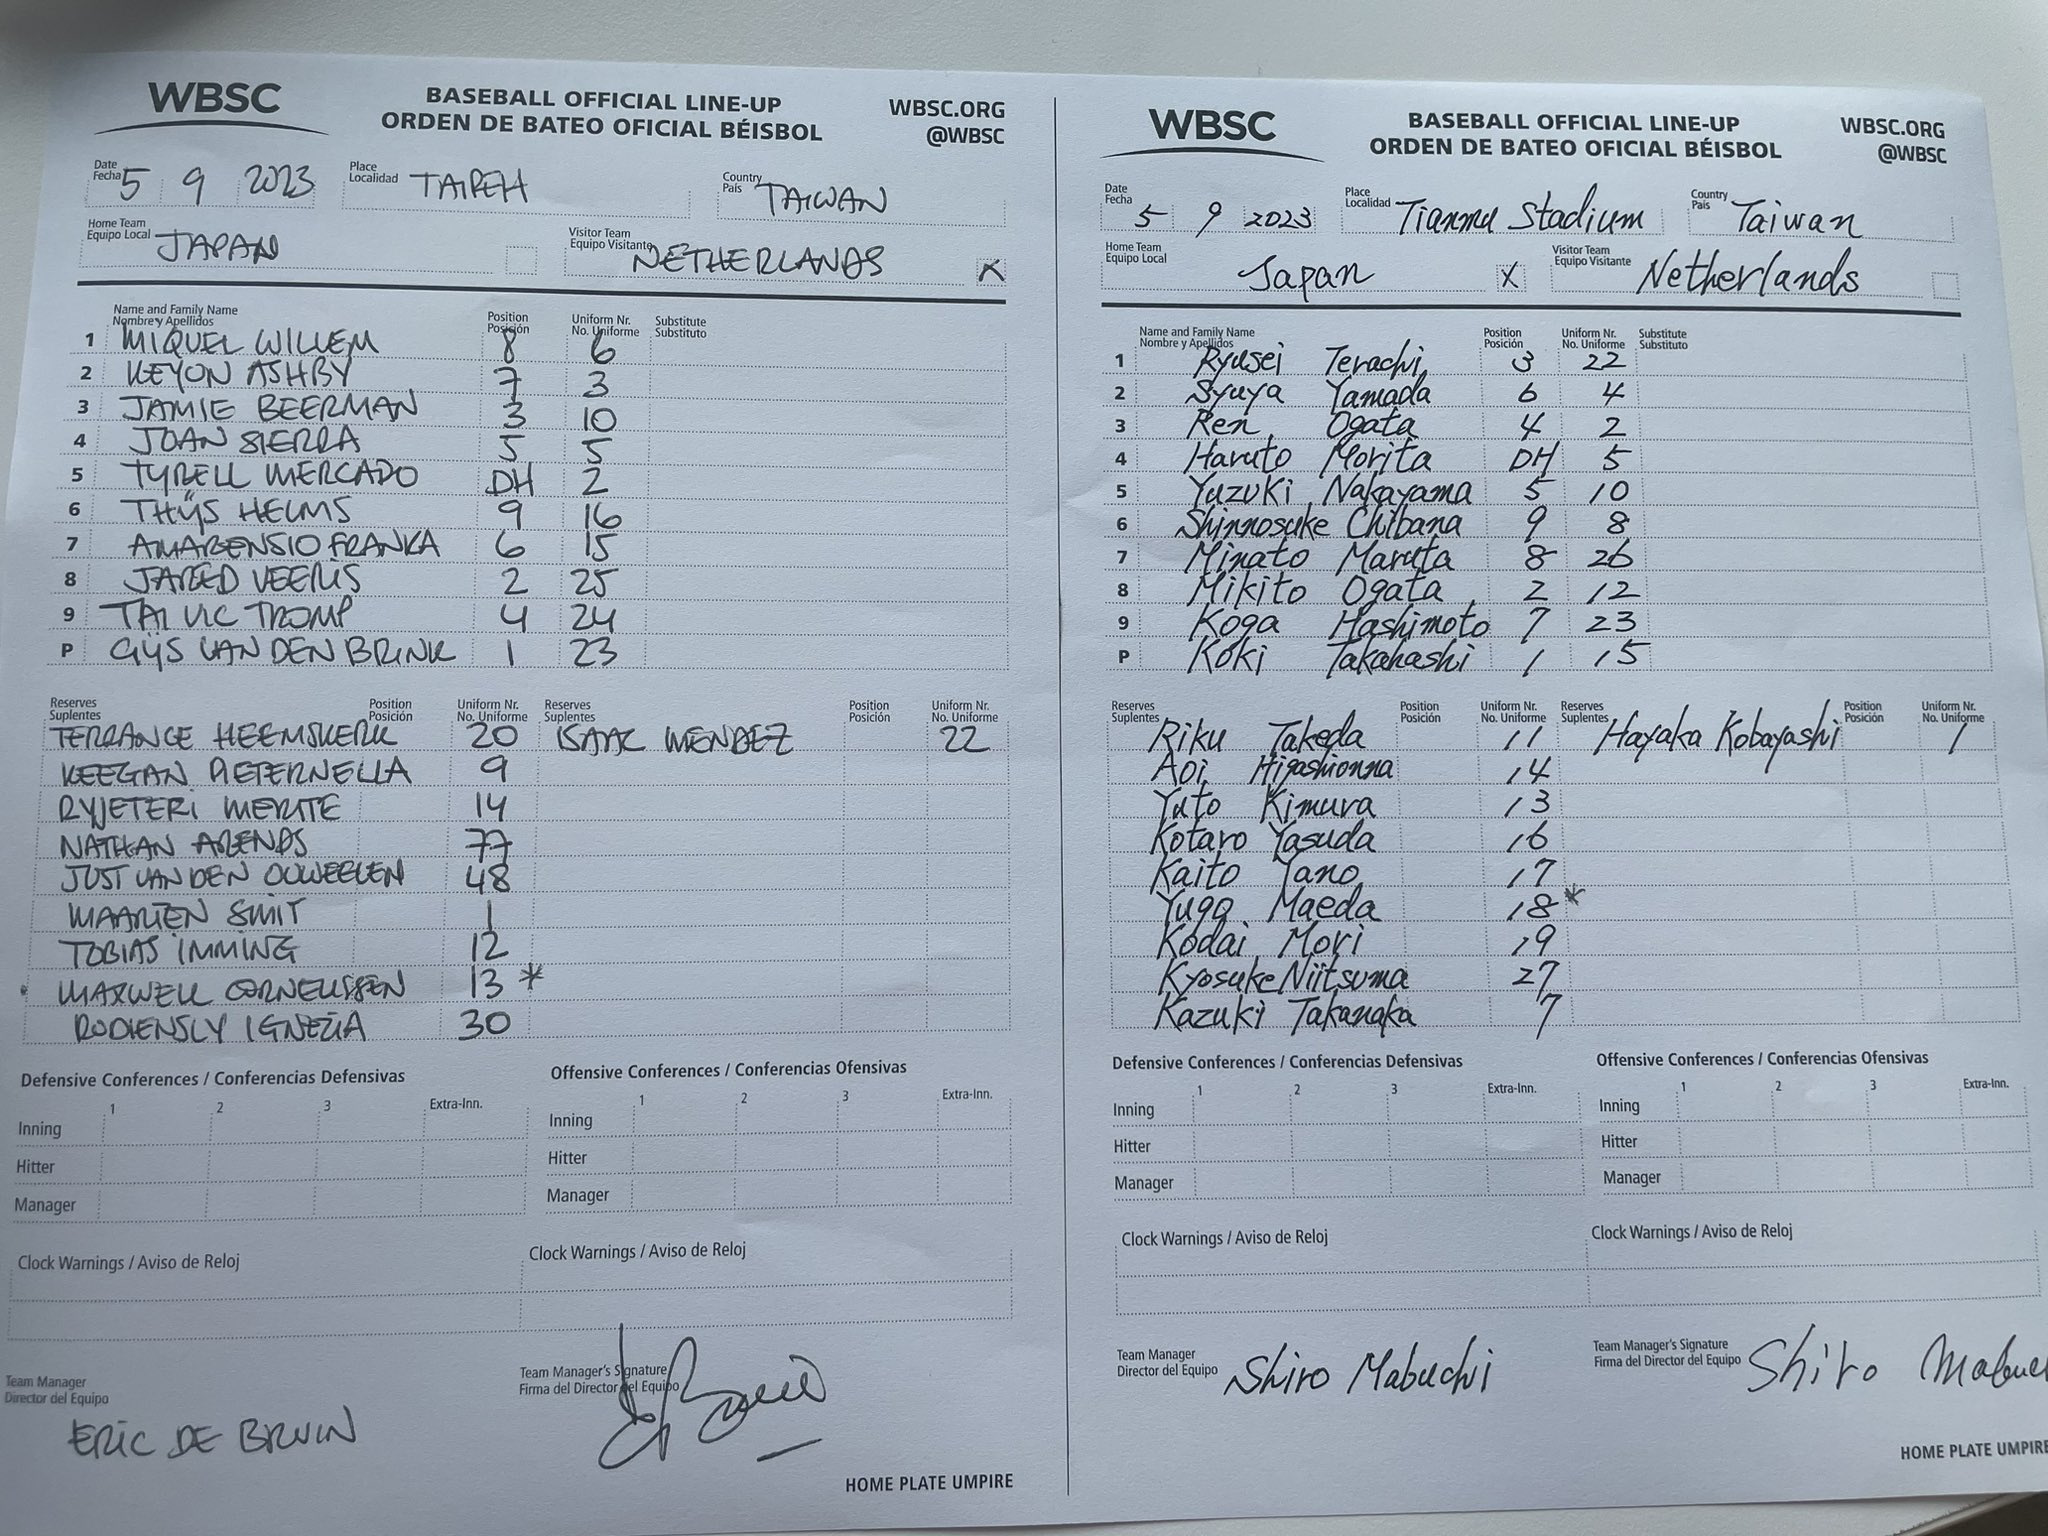 WBSC
BASEBALL OFFICIAL LINE-UP
ORDEN DE BATEO OFICIAL BÉISBOL
WBSC.ORG
@WBSC
Date
Fecha 5 9 2023
Place
Localidad TAIPEH
Country
País TAIWAN
Home Team
Equipo Local JAPAN
Visitor Team
Equipo Visitante NETHERLANDS X
Name and Family Name
Nombre y Apellidos
Position
Posición
Uniform Nr.
No. Uniforme
Substitute
Substituto
1 MIQUEL WILLEM 8 6
2 KEYON ASHBY 7 3
3 JAMIE BEERMAN 3 10
4 JOAN SIERRA 5 5
5 TYRELL MERCADO DH 2
6 THIJS HELMS 9 16
7 AMARENSIO FRANKA 6 15
8 JARED VEERIS 2 25
9 TAI VIC TROMP 4 24
P GIJS VAN DEN BRINK 1 23
Reserves
Suplentes
Position
Posición
Uniform Nr.
No. Uniforme
Reserves
Suplentes
Position
Posición
Uniform Nr.
No. Uniforme
TERRANCE HEEMSKERK 20 ISAAC MENDEZ 22
KEEGAN PIETERNELLA 9
RYJETERI MERITE 14
NATHAN ARENDS 77
JUST VAN DEN OUWEELEN 48
MAARTEN SMIT 1
TOBIAS IMMING 12
MAXWELL CORNELISSEN 13 *
RODIENSLY IGNEZIA 30
Defensive Conferences / Conferencias Defensivas
1 2 3 Extra-Inn.
Inning
Hitter
Manager
Offensive Conferences / Conferencias Ofensivas
1 2 3 Extra-Inn.
Inning
Hitter
Manager
Clock Warnings / Aviso de Reloj
Clock Warnings / Aviso de Reloj
Team Manager
Director del Equipo
ERIC DE BRUIN
Team Manager's Signature
Firma del Director del Equipo
HOME PLATE UMPIRE
WBSC
BASEBALL OFFICIAL LINE-UP
ORDEN DE BATEO OFICIAL BÉISBOL
WBSC.ORG
@WBSC
Date
Fecha 5 9 2023
Place
Localidad Tianmu Stadium
Country
País Taiwan
Home Team
Equipo Local Japan X
Visitor Team
Equipo Visitante Netherlands
Name and Family Name
Nombre y Apellidos
Position
Posición
Uniform Nr.
No. Uniforme
Substitute
Substituto
1 Ryusei Terachi 3 22
2 Syuya Yamada 6 4
3 Ren Ogata 4 2
4 Haruto Morita DH 5
5 Yuzuki Nakayama 5 10
6 Shinnosuke Chibana 9 8
7 Minato Maruta 8 26
8 Mikito Ogata 2 12
9 Koga Hashimoto 7 23
P Koki Takahashi 1 15
Reserves
Suplentes
Position
Posición
Uniform Nr.
No. Uniforme
Reserves
Suplentes
Position
Posición
Uniform Nr.
No. Uniforme
Riku Takeda 11 Hayaka Kobayashi 1
Aoi Higashionna 14
Yuto Kimura 13
Kotaro Yasuda 16
Kaito Yano 17
Yugo Maeda 18 *
Kodai Mori 19
Kyosuke Niitsuma 27
Kazuki Takanaka 7
Defensive Conferences / Conferencias Defensivas
1 2 3 Extra-Inn.
Inning
Hitter
Manager
Offensive Conferences / Conferencias Ofensivas
1 2 3 Extra-Inn.
Inning
Hitter
Manager
Clock Warnings / Aviso de Reloj
Clock Warnings / Aviso de Reloj
Team Manager
Director del Equipo Shiro Mabuchi
Team Manager's Signature
Firma del Director del Equipo Shiro
HOME PLATE UMPIRE